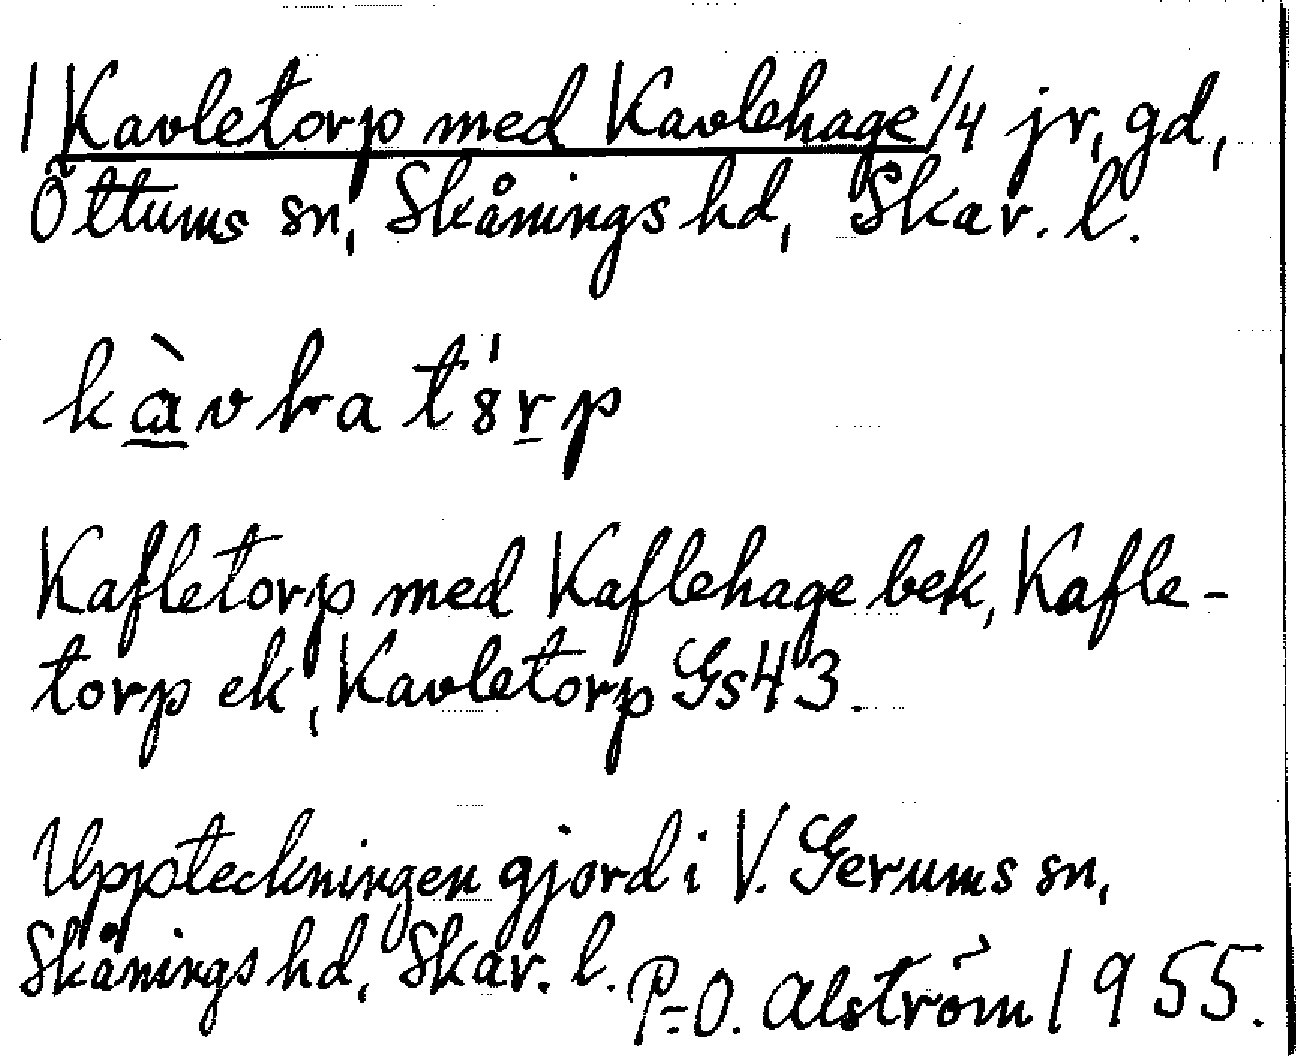 1 Kavletorp med Kavlehage 1/4 jr, gd,
Öttums sn, Skånings hd, Skar. l.
Kafletorp med Kaflehage bek, Kafle-
torp ek, Kavletorp Gs43.
Uppteckningen gjord i V. Gerums sn,
Skånings hd, Skar. l. P-O. Alström 1955.